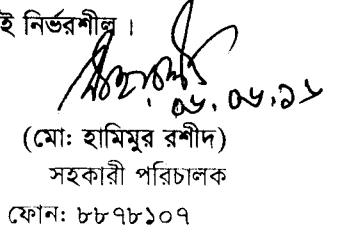 ই নির্ভরশীল।
০৮.০৮.১৮
(মো: হামিমুর রশীদ)
সহকারী পরিচালক
ফোন: ৮৮৭৮১০৭